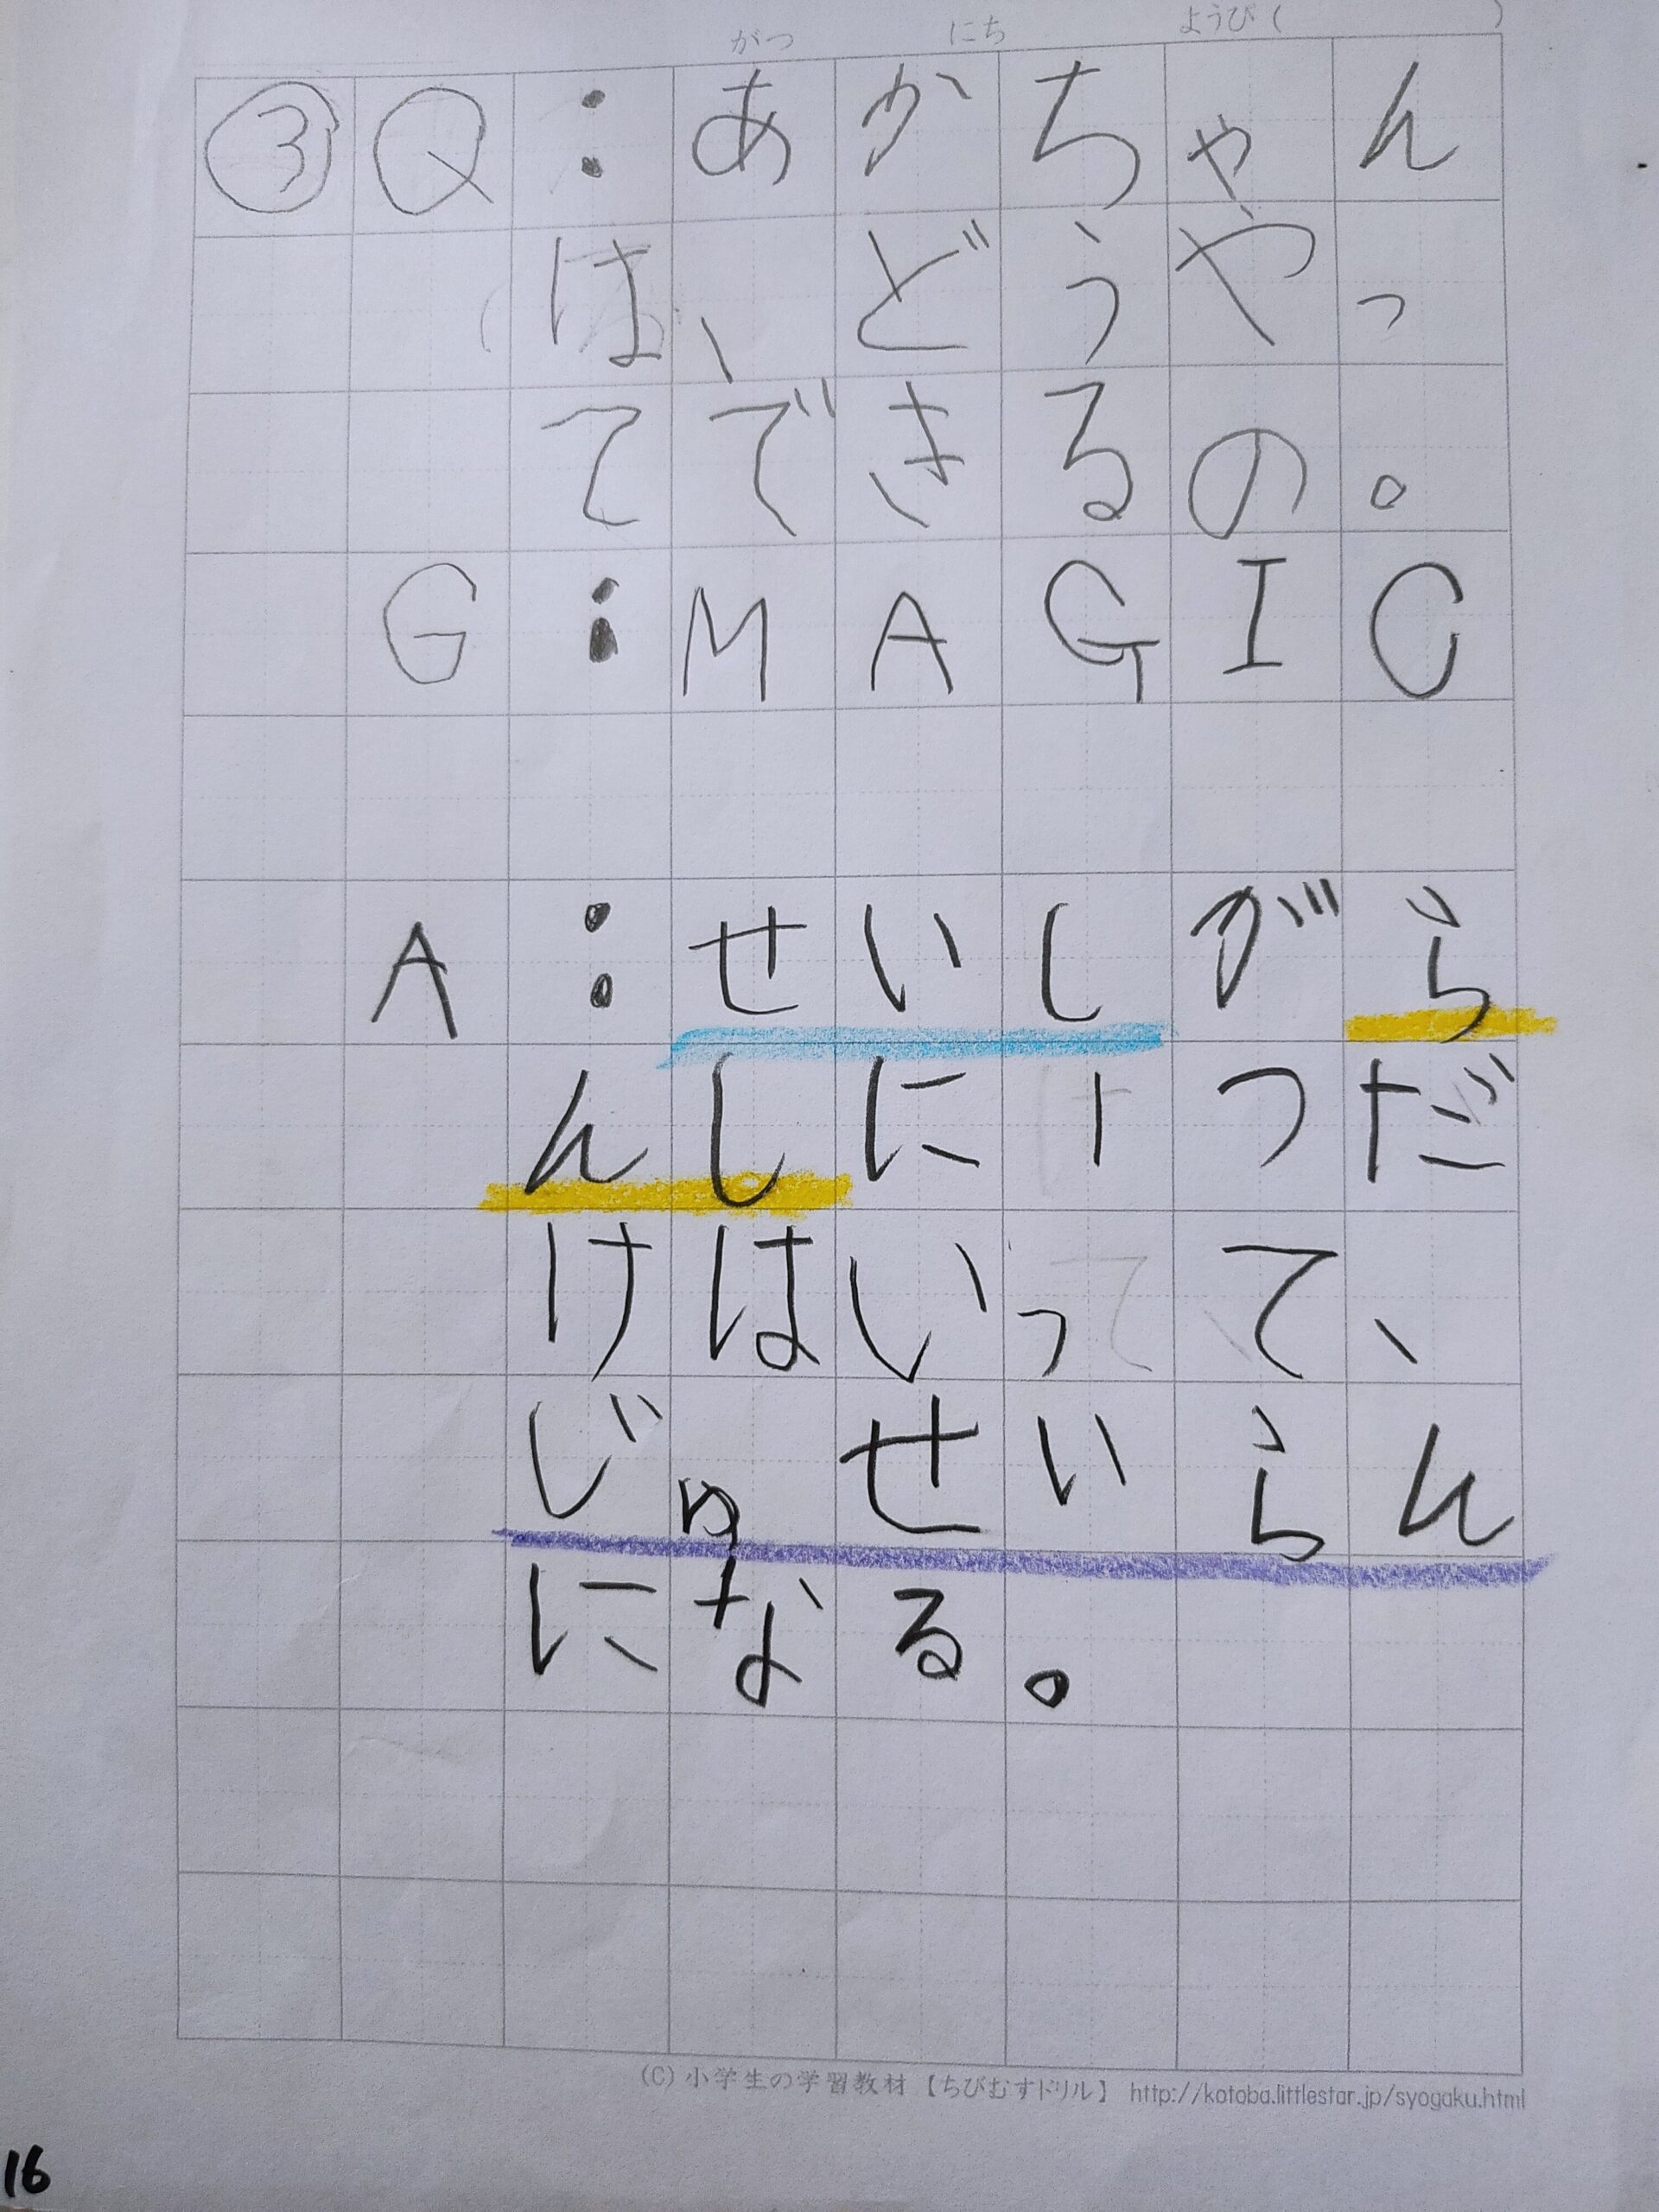 がつ にち ようび( )
③Q:あかちゃん
は、どうやっ
てできるの。
G:MAGIC
A:せいしがら
んしに1つだ
けはいって、
じゅせいらん
になる。
(C) 小学生の学習教材【ちびむすドリル】 http://kotoba.littlestar.jp/syogaku.html
16